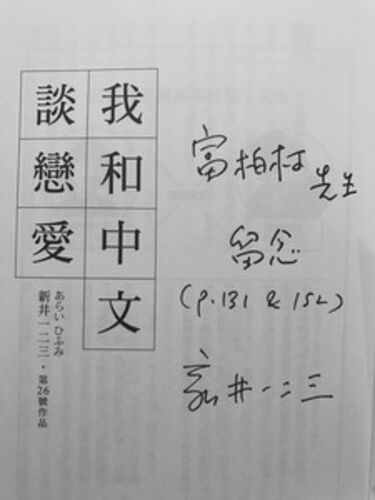 我和中文
談戀愛
あらい ひふみ
新井一二三・第26號作品
富柏村 先生
留念
(P. 131 & 152)
新井一二三